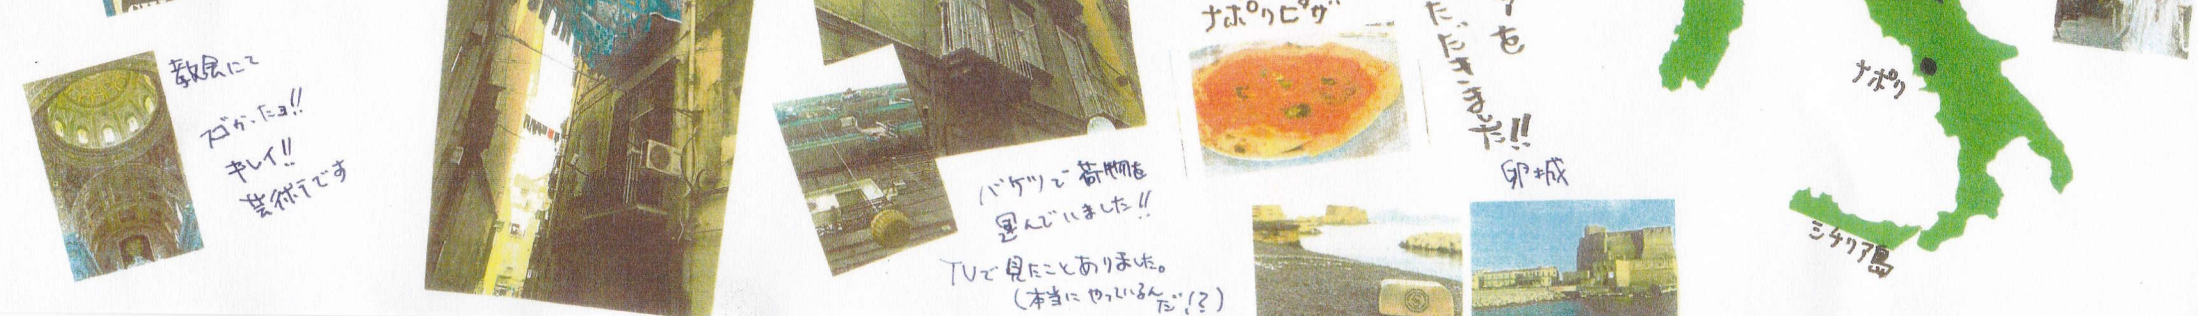 教会にて
スゴかったヨ!!
キレイ!!
芸術です
バケツで荷物を
運んでいました!!
TVで見たことありました。
(本当にやっているんだ!?)
ナポリピザ
を
だきました!!
卵城
ナポリ
シチリア島